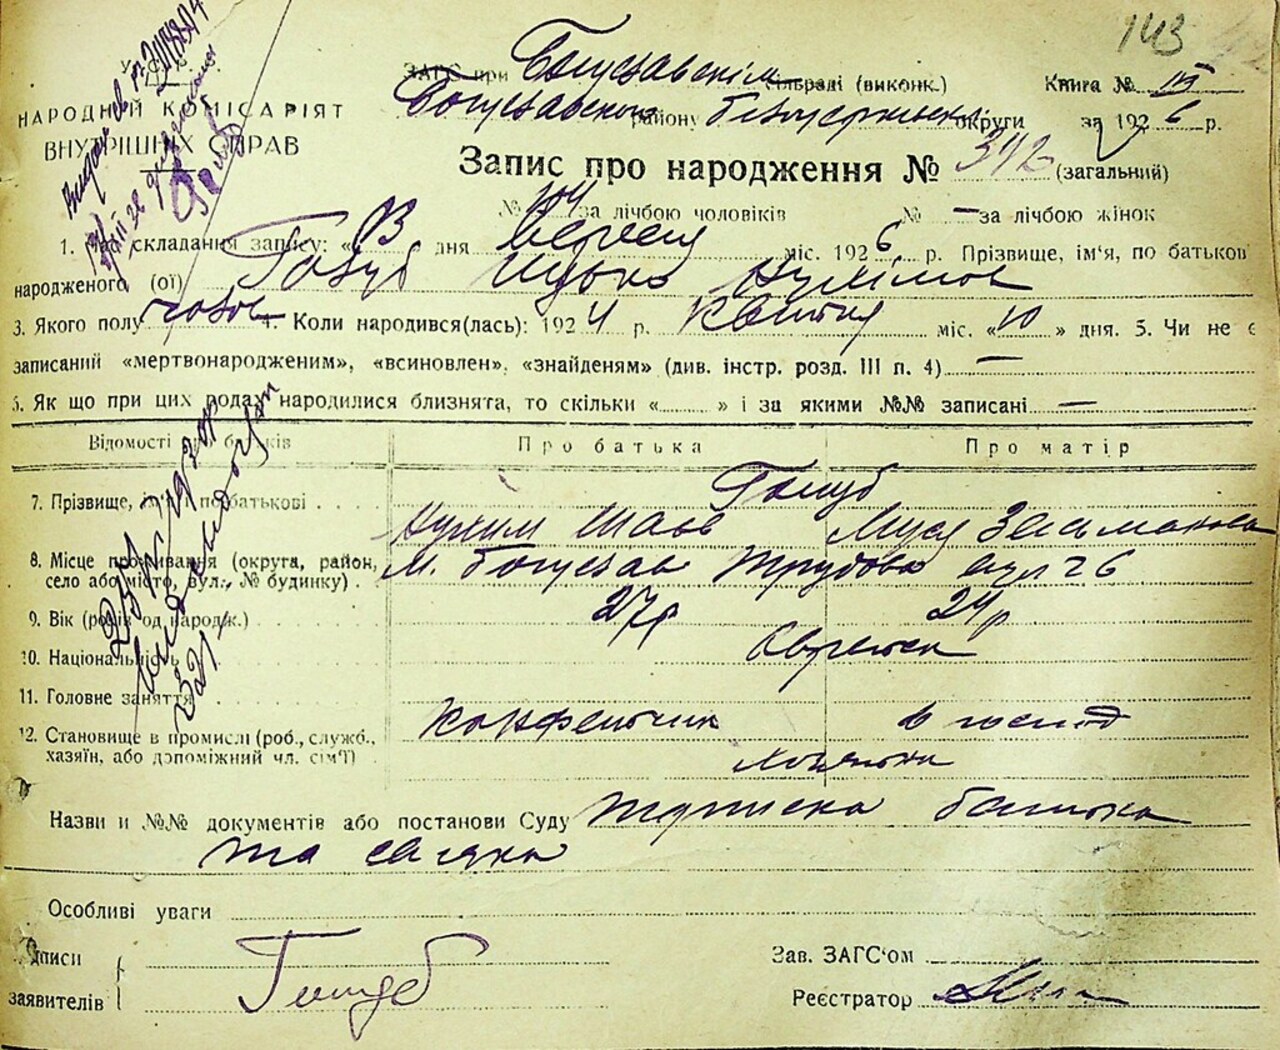 143
У.С.Р.Р.
НАРОДНИЙ КОМІСАРІЯТ
ВНУТРІШНИХ СПРАВ
ЗАГС при Богуславскім сільраді (виконк.) Книга № III
Богуславского району Білоцерківськ округи за 1926 р.
Запис про народження № 342 (загальний)
№ 184 за лічбою чоловіків № — за лічбою жінок
1. складання запису: « 13 дня вересня міс. 1926 р. Прізвище, ім'я, по батьков
народженого (ої) Голуб Ицько Нухимов
3. Якого полу чолов 4. Коли народився(лась): 1924 р. Квітня міс. «10» дня. 5. Чи не є
записаний «мертвонародженим», «всиновлен», «знайденям» (див. інстр. розд. III п. 4) —
6. Як що при цих родах народилися близнята, то скільки «......» і за якими №№ записані —
Відомості про батьків Про батька Про матір
Голуб
7. Прізвище, ім'я, по батькові Нухим Шаев Муся Зельманова
8. Місце проживання (округа, район, село або місто, вул., № будинку) м. Богуслав Трудова вул 26
9. Вік (років од народж.) 27 р 24 р
10. Національність Евреи
11. Головне заняття
12. Становище в промислі (роб., служб., хазяїн, або допоміжний чл. сім'ї) в господ
Назви и №№ документів або постанови Суду підписка батька
та свідка
Особливі уваги
Підписи заявителів Голуб
Зав. ЗАГС'ом
Реєстратор